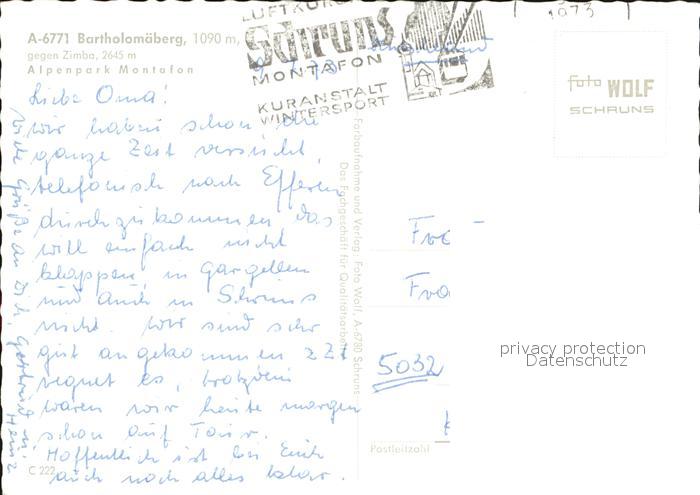 LUFTKURORT
Schruns
MONTAFON
KURANSTALT
WINTERSPORT
A-6771 Bartholomäberg, 1090 m,
gegen Zimba, 2645 m
Alpenpark Montafon
foto WOLF
SCHRUNS
Liebe Oma!
Wir haben schon die
ganze Zeit versucht,
telefonisch nach Efferen
durchzukommen, das
will einfach nicht
klappen, in Gargellen
und auch in Schruns
nicht. Wir sind sehr
gut angekommen zZt
regnet es, trotzdem
waren wir heute morgen
schon auf Tour.
Hoffentlich ist bei Euch
auch noch alles klar.
Viele Grüße an Dich, Gertrud u.
Heinz
C 222
Farbaufnahme und Verlag: Foto Wolf, A-6780 Schruns
Das Fachgeschäft für Qualitätsarbeit
Fra
5032
Postleitzahl
privacy protection
Datenschutz